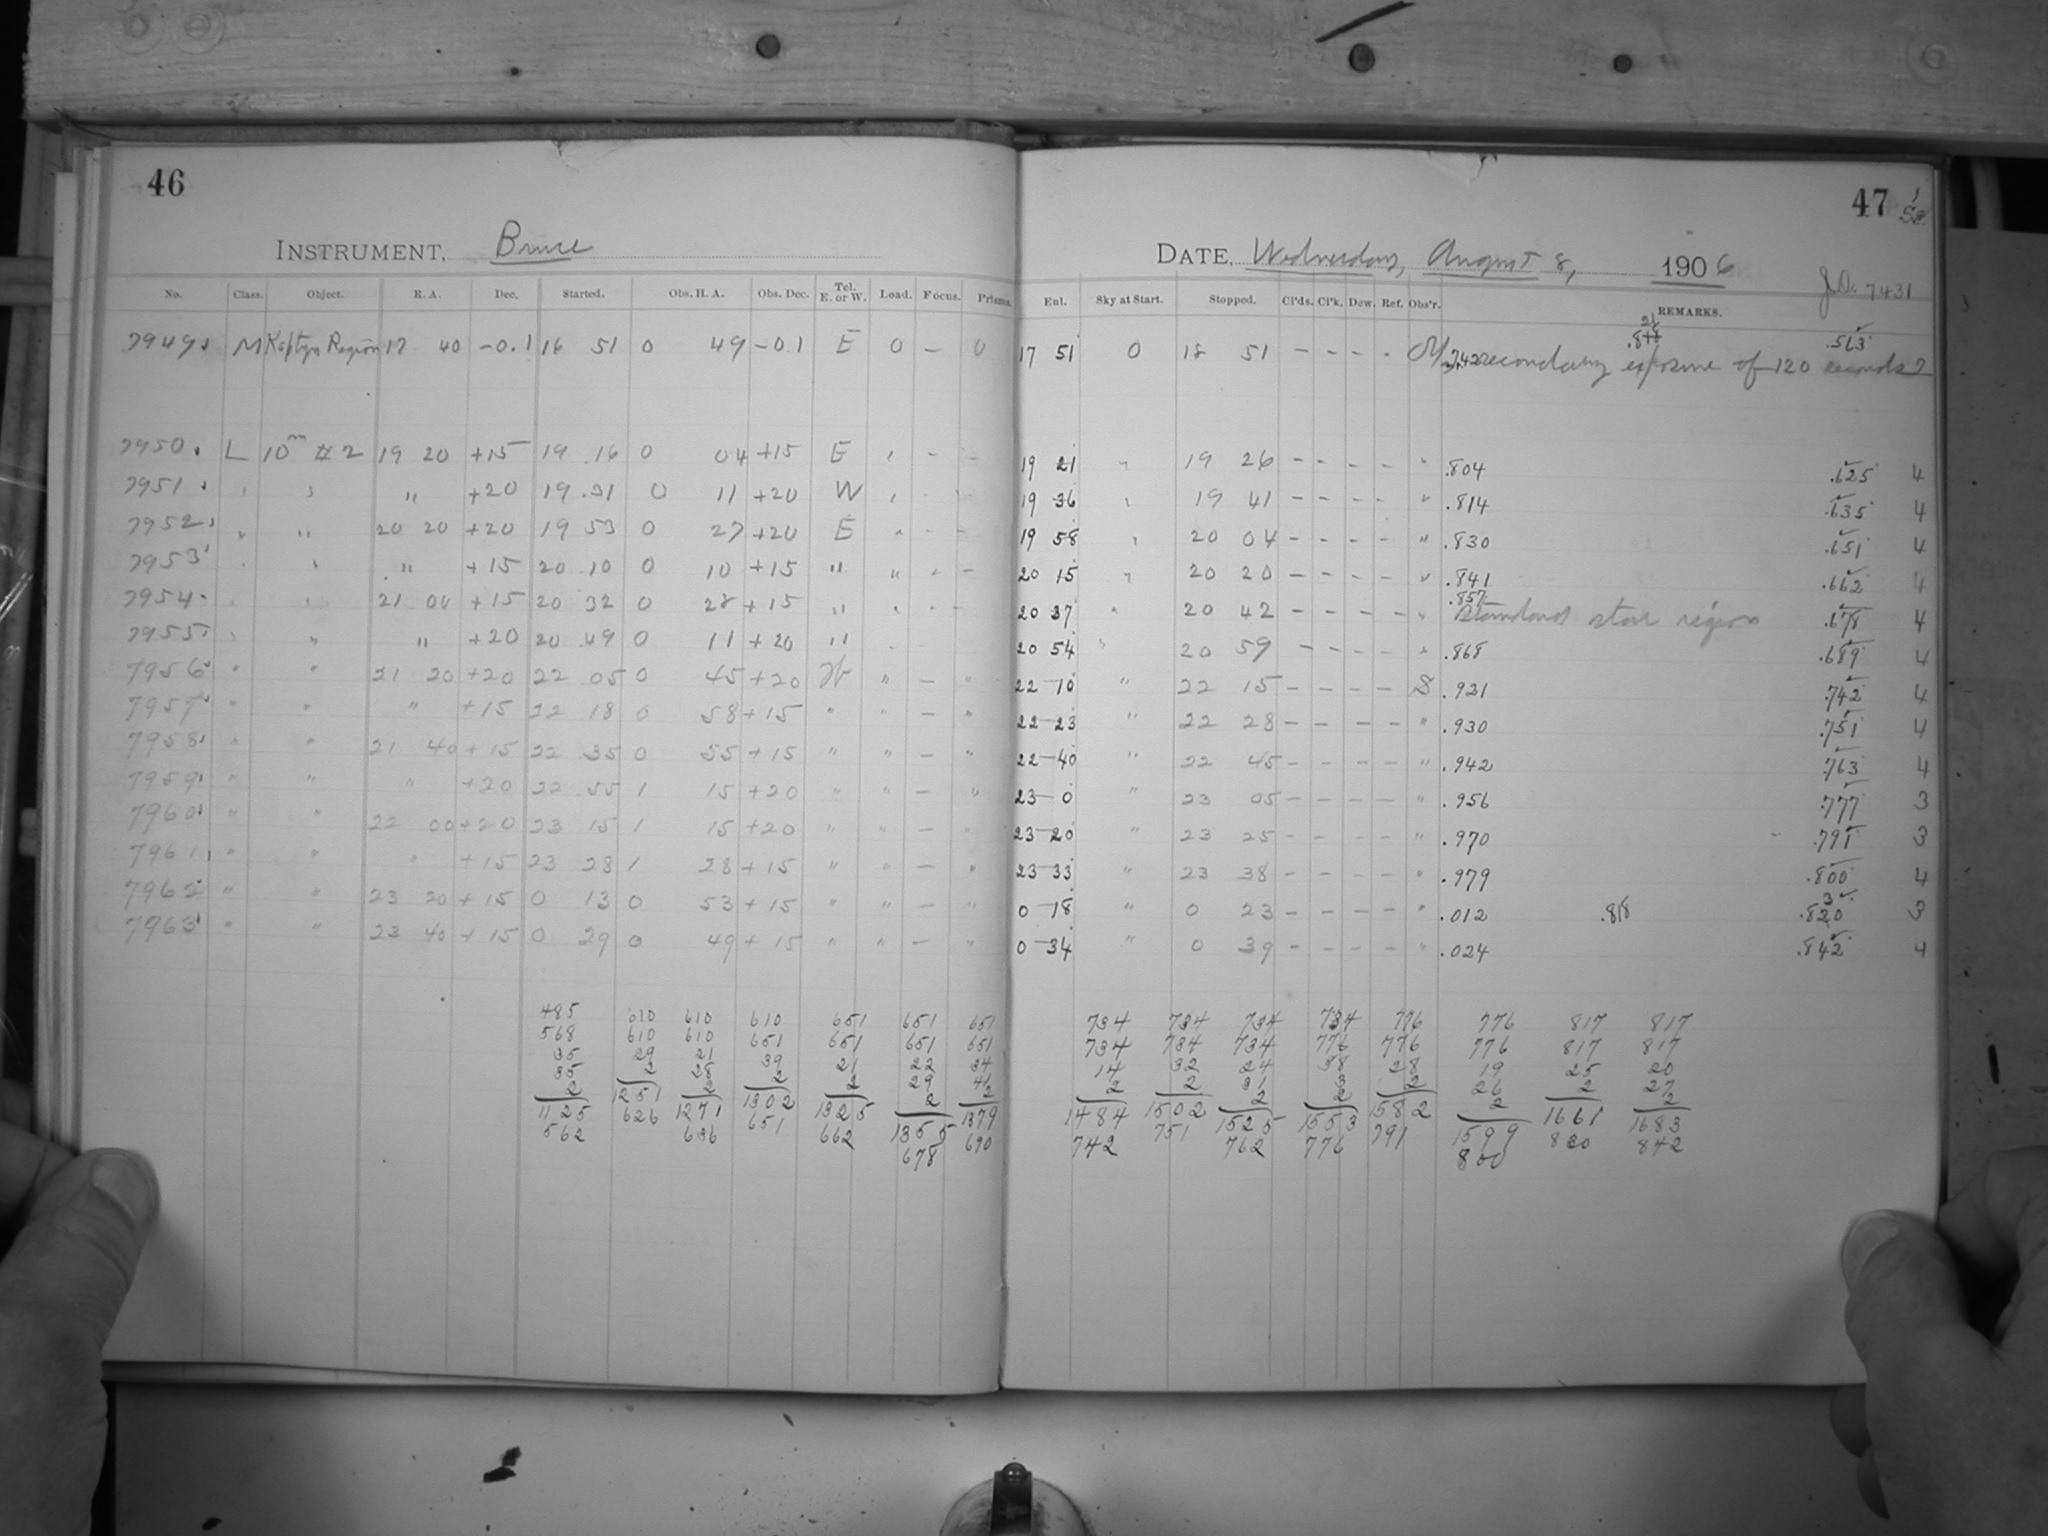 46
INSTRUMENT, Bruce
No. Class. Object. R. A. Dec. Started. Obs. H. A. Obs. Dec. Tel. E. or W. Load. Focus. Prisms.
7949 M Kaptyn Region 17 40 -0.1 16 51 0 49 -0 1 E 0 - 0
7950 L 10m #2 19 20 +15 19 16 0 04 +15 E , - -
7951 , , " +20 19 31 0 11 +20 W , - -
7952 " " 20 20 +20 19 53 0 27 +20 E " - -
7953 , , " +15 20 10 0 10 +15 " " - -
7954 , , 21 00 +15 20 32 0 28 +15 " " - -
7955 , " " +20 20 49 0 11 +20 " - -
7956 " " 21 20 +20 22 05 0 45 +20 W " - "
7957 " " " +15 22 18 0 58 +15 " " - "
7958 " " 21 40 +15 22 35 0 55 +15 " " - "
7959 " " " +20 22 55 1 15 +20 " " - "
7960 " " 22 00 +20 23 15 1 15 +20 " " - "
7961 " " " +15 23 28 1 28 +15 " " - "
7962 " " 23 20 +15 0 13 0 53 +15 " " - "
7963 " " 23 40 +15 0 29 0 49 +15 " " - "
485 610 610 610 651 651 651
568 610 610 651 651 651 651
35 29 21 39 21 22 34
35 2 28 2 2 29 41
2 1251 2 1302 1325 2 2
1125 626 1271 651 662 1355 1379
562 636 678 690
47
DATE, Wednesday, August 8, 1906
J.D. 7431
Enl. Sky at Start. Stopped. Cl'ds. Cl'k. Dew. Ref. Obs'r. REMARKS.
17 51 0 18 51 - - - - .563
secondary exposure of 120 seconds
19 21 " 19 26 - - - - " .804 .625 4
19 36 , 19 41 - - - - " .814 .635 4
19 58 , 20 04 - - - - " .830 .651 4
20 15 " 20 20 - - - - " .841 .662 4
20 37 " 20 42 - - - - " .857 Standard star region .678 4
20 54 " 20 59 - - - - " .868 .689 4
22 10 " 22 15 - - - - S .921 .742 4
22 23 " 22 28 - - - - " .930 .751 4
22 40 " 22 45 - - - - " .942 .763 4
23 0 " 23 05 - - - - " .956 .777 3
23 20 " 23 25 - - - - " .970 .791 3
23 33 " 23 38 - - - - " .979 .800 4
0 18 " 0 23 - - - - " .012 .818 .820 3
0 34 " 0 39 - - - - " .024 .842 4
734 734 734 734 776 776 817 817
734 734 734 776 776 776 817 817
14 32 24 38 28 19 25 20
2 2 31 3 2 26 2 27
1484 1502 2 2 1582 2 1661 2
742 751 1525 1553 791 1599 830 1683
762 776 800 842